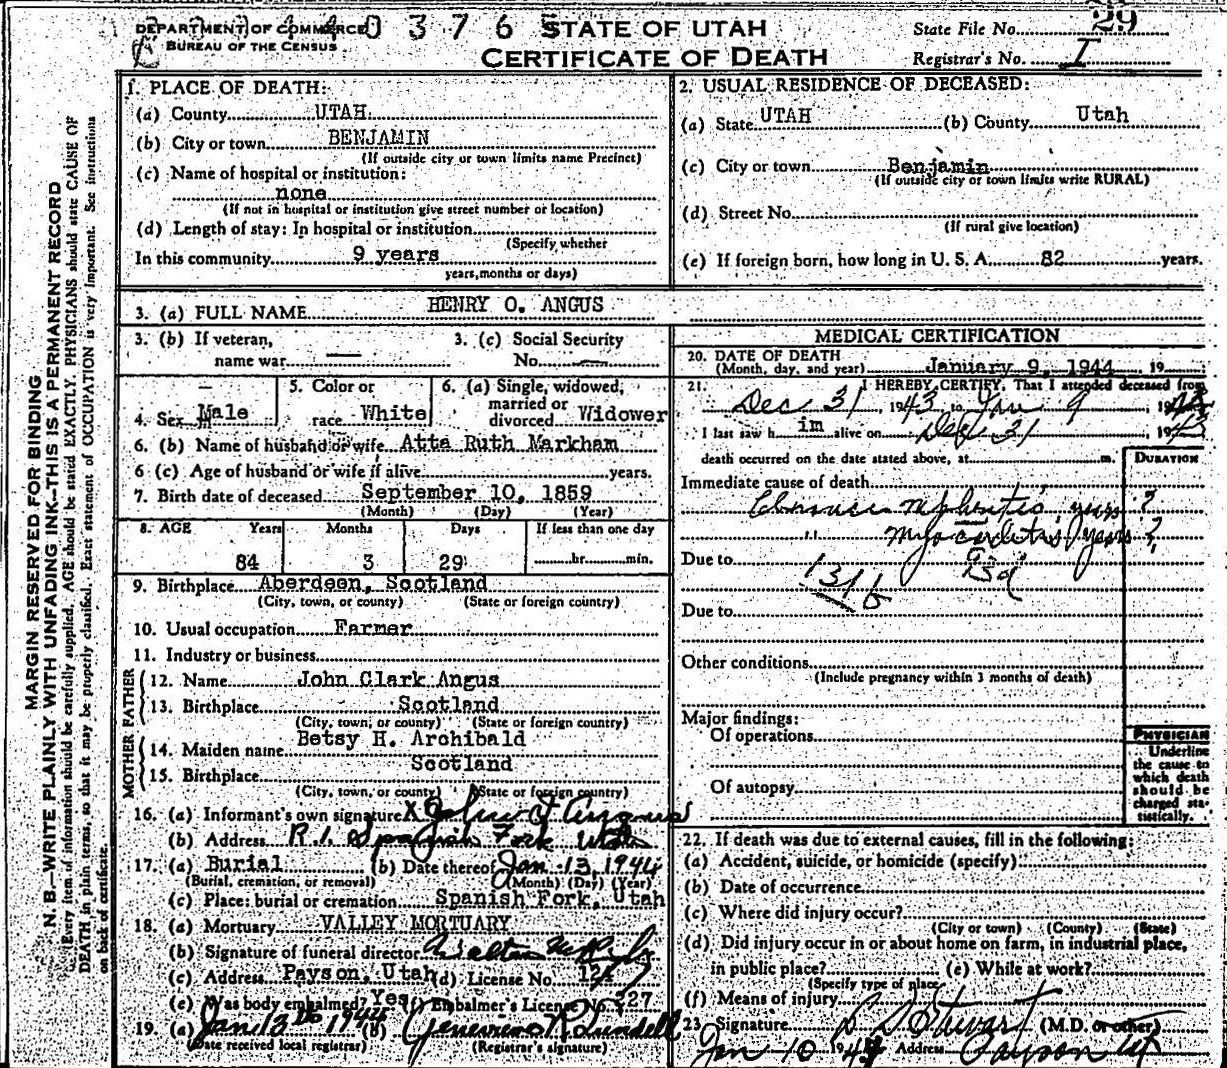 DEPARTMENT OF COMMERCE
BUREAU OF THE CENSUS
0 3 7 6
STATE OF UTAH
CERTIFICATE OF DEATH
State File No. 29
Registrar's No. I
MARGIN RESERVED FOR BINDING
N. B.—WRITE PLAINLY WITH UNFADING INK—THIS IS A PERMANENT RECORD
Every item of information should be carefully supplied. AGE should be stated EXACTLY. PHYSICIANS should state CAUSE OF
DEATH in plain terms, so that it may be properly classified. Exact statement of OCCUPATION is very important. See instructions
on back of certificate.
1. PLACE OF DEATH:
(a) County UTAH
(b) City or town BENJAMIN
(If outside city or town limits name Precinct)
(c) Name of hospital or institution:
none
(If not in hospital or institution give street number or location)
(d) Length of stay: In hospital or institution
(Specify whether
In this community 9 years
years, months or days)
2. USUAL RESIDENCE OF DECEASED:
(a) State UTAH (b) County Utah
(c) City or town Benjamin
(If outside city or town limits write RURAL)
(d) Street No.
(If rural give location)
(e) If foreign born, how long in U. S. A. 82 years.
3. (a) FULL NAME HENRY O. ANGUS
3. (b) If veteran, name war —
3. (c) Social Security No. —
4. Sex Male
5. Color or race White
6. (a) Single, widowed, married or divorced Widower
6. (b) Name of husband or wife Atta Ruth Markham
6 (c) Age of husband or wife if alive years.
7. Birth date of deceased September 10, 1859
(Month) (Day) (Year)
8. AGE Years Months Days If less than one day
84 3 29 hr. min.
9. Birthplace Aberdeen, Scotland
(City, town, or county) (State or foreign country)
10. Usual occupation Farmer
11. Industry or business
FATHER
12. Name John Clark Angus
13. Birthplace Scotland
(City, town, or county) (State or foreign country)
MOTHER
14. Maiden name Betsy H. Archibald
15. Birthplace Scotland
(City, town, or county) (State or foreign country)
16. (a) Informant's own signature X John F Angus
(b) Address R.1. Spanish Fork Utah
17. (a) Burial (b) Date thereof Jan 13, 1944
(Burial, cremation, or removal) (Month) (Day) (Year)
(c) Place: burial or cremation Spanish Fork, Utah
18. (a) Mortuary VALLEY MORTUARY
(b) Signature of funeral director
(c) Address Payson, Utah (d) License No.
(e) Was body embalmed? Yes (f) Embalmer's License No. 227
19. (a) Jan 13 1944 (b) Lundell
(Date received local registrar) (Registrar's signature)
MEDICAL CERTIFICATION
20. DATE OF DEATH
(Month, day, and year) January 9, 1944 19
21. I HEREBY CERTIFY, That I attended deceased from
Dec 31, 1943 to Jan 9, 19
I last saw h im alive on Dec 31, 1943
death occurred on the date stated above, at m.
DURATION
Immediate cause of death
Chronic nephritis years ?
" myocarditis years ?
Due to 93d
131b
Due to
Other conditions
(Include pregnancy within 3 months of death)
Major findings:
Of operations
Of autopsy
PHYSICIAN
Underline
the cause to
which death
should be
charged sta-
tistically.
22. If death was due to external causes, fill in the following:
(a) Accident, suicide, or homicide (specify)
(b) Date of occurrence
(c) Where did injury occur?
(City or town) (County) (State)
(d) Did injury occur in or about home on farm, in industrial place,
in public place? (e) While at work?
(Specify type of place)
(f) Means of injury
23. Signature Stewart (M.D. or other)
Jan 10 1944 Address Payson Ut